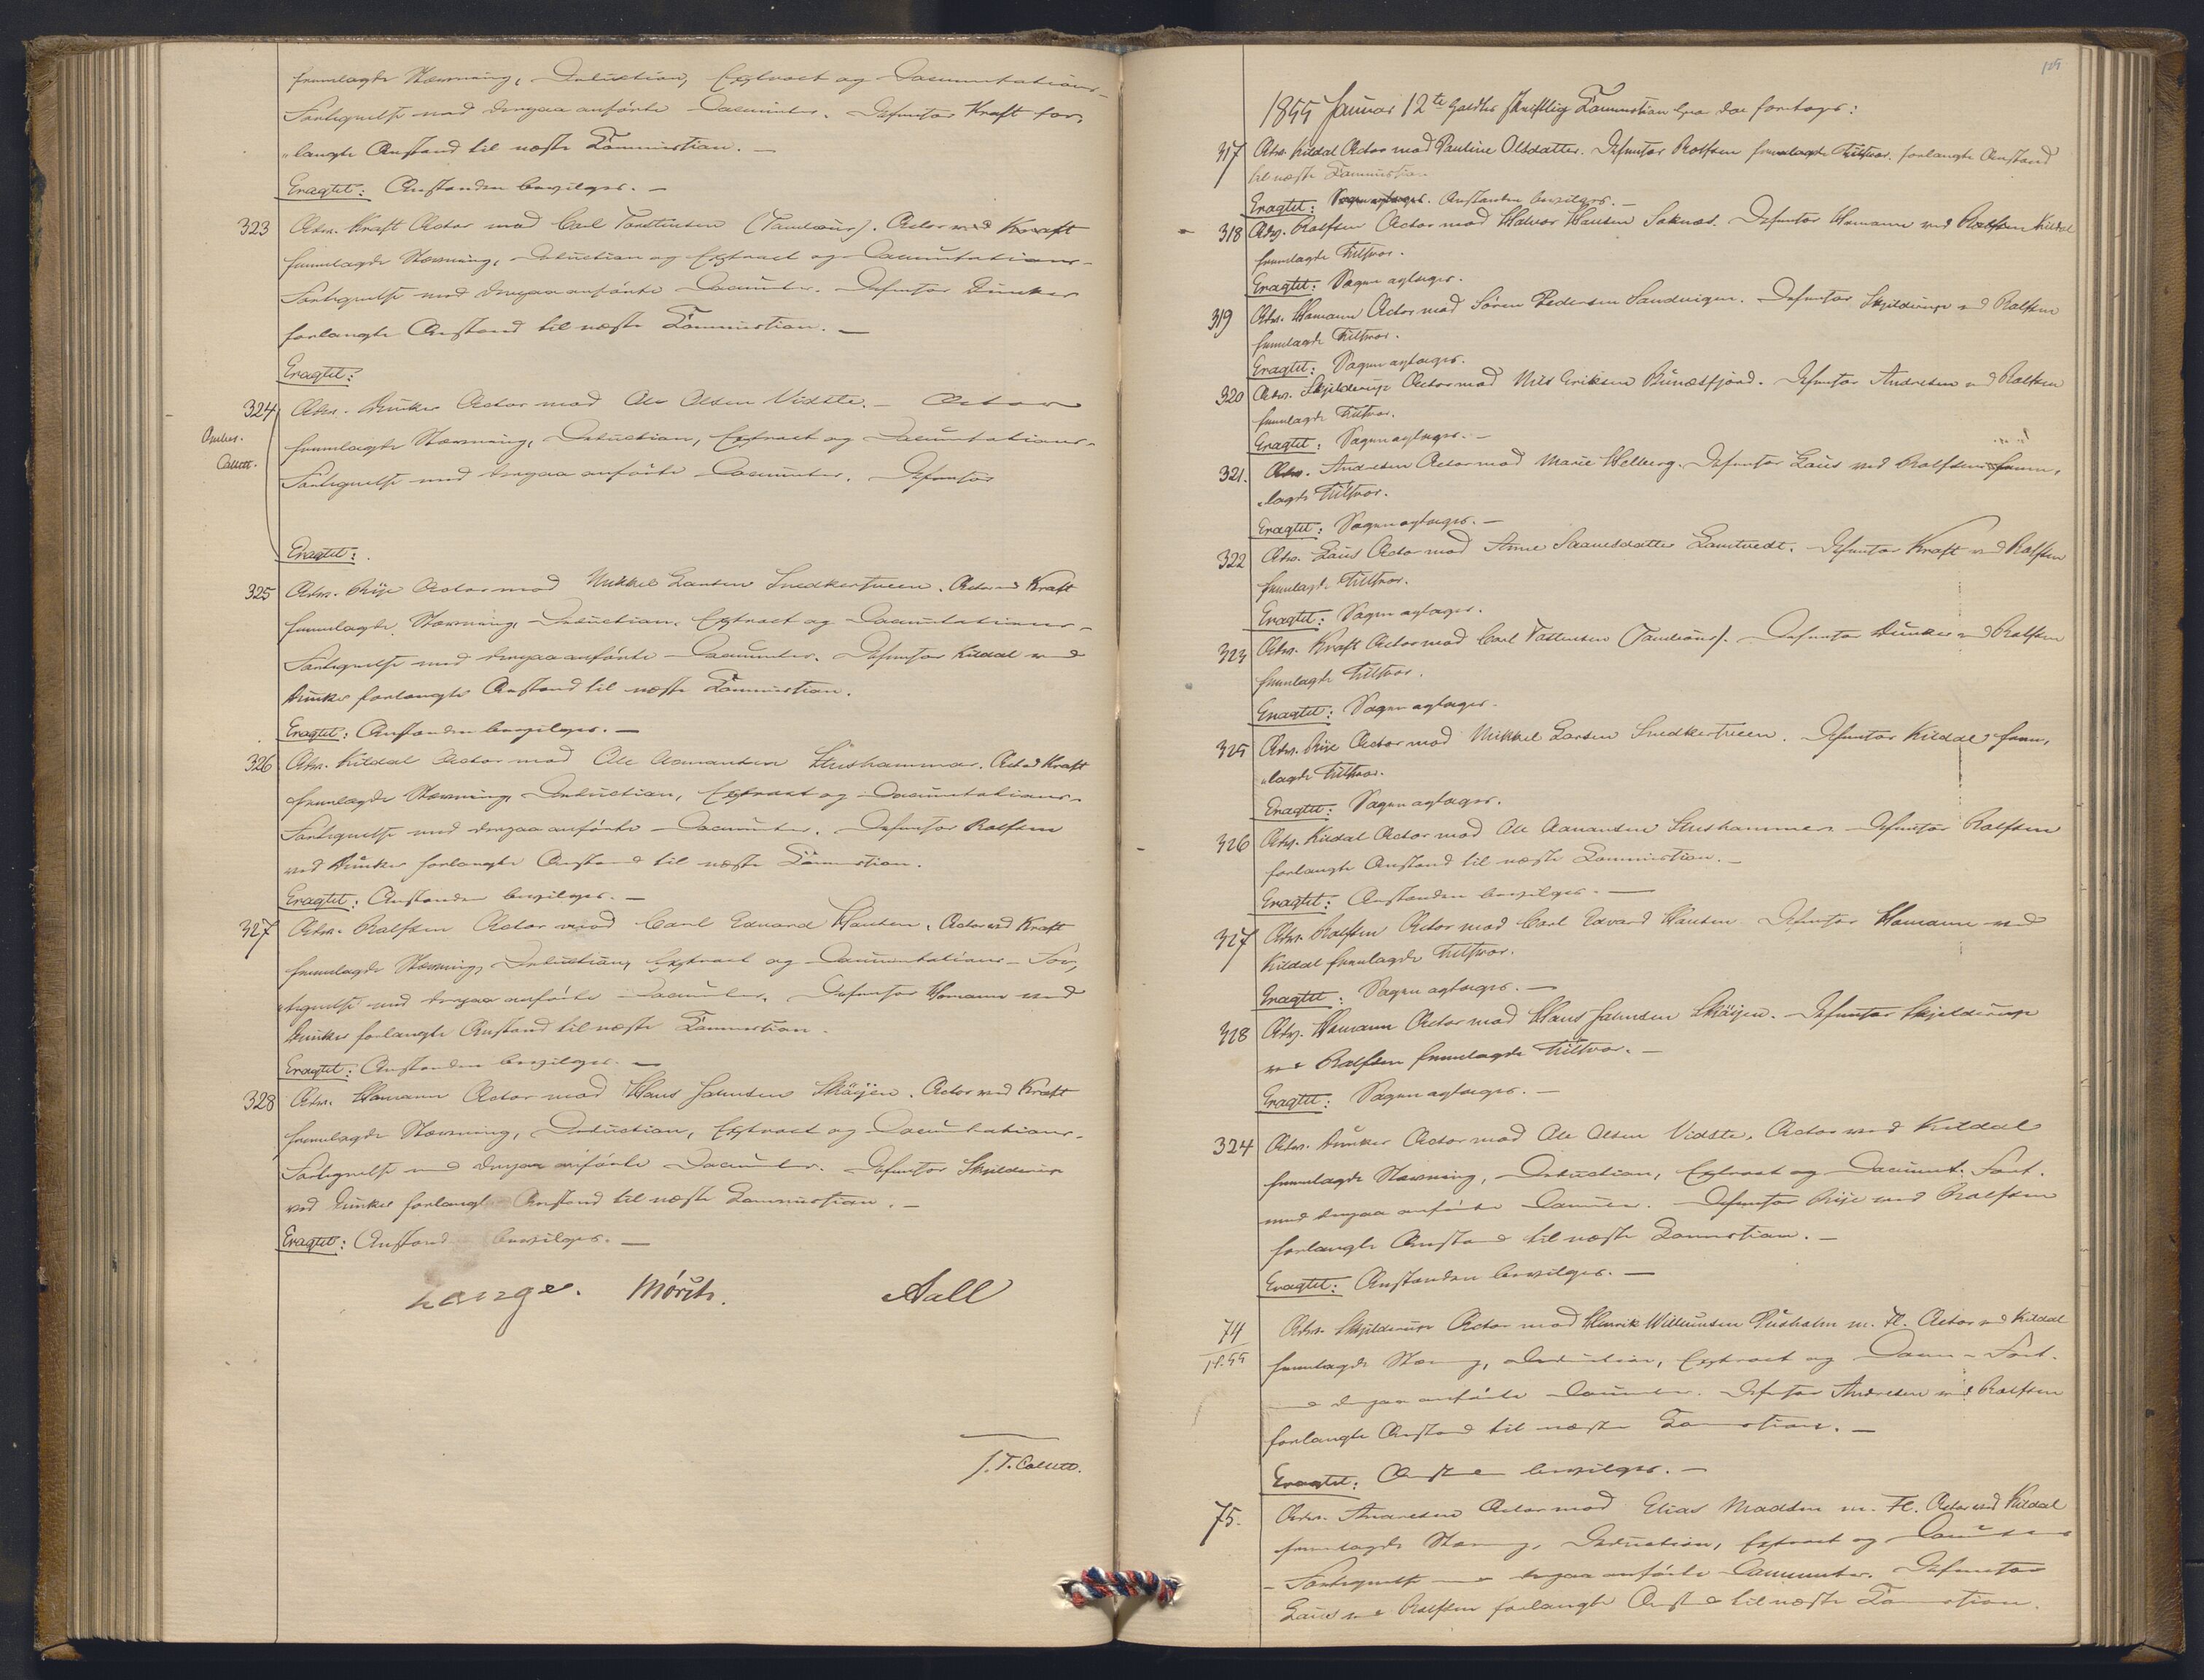 fremlagde Stævning, Deduction, Extract og Documentations-
Fortegnelse med derpaa anførte Documenter. Defensor Kraft for-
„langte Anstand til næste Sammentræden.
Eragtet: Anstanden bevilges. —
323 Adv. Kraft Actor mod Carl Torstensen (Tambour). Actor ved Kraft
fremlagde Stævning, Deduction og Extract og Documentations-
Fortegnelse med derpaa anførte Documenter. Defensor Dunker
forlangte Anstand til næste
Eragtet:
324 Adv. Dunker Actor mod Ole Olsen Vidste. — Actor
Collett.
fremlagde Stævning, Deduction, Extract og Documentations-
Fortegnelse med derpaa anførte Documenter. Defensor
Eragtet:
325 Adv. Rije Actor mod Mikkel Larsen Snedkertueen. Actor ved Kraft
fremlagde Stævning, Deduction, Extract og Documentations-
Fortegnelse med derpaa anførte Documenter. Defensor Kildal ved
Dunker forlangte Anstand til næste
Eragtet: Anstanden bevilges. —
326 Adv. Kildal Actor mod Ole Aamundsen Actor ved Kraft
fremlagde Stævning, Deduction, Extract og Documentations-
Fortegnelse med derpaa anførte Documenter. Defensor Rolfsen
ved Dunker forlangte Anstand til næste
Eragtet: Anstanden bevilges. —
327 Adv. Rolfsen Actor mod Carl Eduard Hansen. Actor ved Kraft
fremlagde Stævning, Deduction, Extract og Documentations-For-
„tegnelse med derpaa anførte Documenter. Defensor Homann ved
Dunker forlangte Anstand til næste
Eragtet: Anstanden bevilges. —
328 Adv. Homann Actor mod Hans Johnsen Skøijen. Actor ved Kraft
fremlagde Stævning, Deduction, Extract og Documentations-
Fortegnelse med derpaa anførte Documenter. Defensor Skjelderup
ved Dunker forlangte Anstand til næste
Eragtet: Anstanden bevilges. —
Lange. Mørch. Aall
J. T. Collett.
125
1855 Januar 12te holdtes skriftlig hvor da foretoges:
317 Adv. Kildal Actor mod Pauline Olsdatter. Defensor Rolfsen fremlagde Tilsvar. forlangte Anstand
til næste
Eragtet: Sagen optages. Anstanden bevilges. —
318 Adv. Rolfsen Actor mod Halvor Hansen Saknæs. Defensor Homann ved Rolfsen Kildal
fremlagde Tilsvar.
Eragtet: Sagen optages.
319 Adv. Homann Actor mod Søren Pedersen Sandvigen. Defensor Skjelderup ved Rolfsen
fremlagde Tilsvar.
Eragtet: Sagen optages.
320 Adv. Skjelderup Actor mod Nils Eriksen Bunæsfjord. Defensor Andresen ved Rolfsen
fremlagde Tilsvar.
Eragtet: Sagen optages. —
321. Adv. Andresen Actor mod Marie Helberg. Defensor Lous ved Rolfsen frem-
„lagde Tilsvar.
Eragtet: Sagen optages. —
322 Adv. Lous Actor mod Anne Saamesdatter Lamtvedt. Defensor Kraft ved Rolfsen
fremlagde Tilsvar.
Eragtet: Sagen optages.
323 Adv. Kraft Actor mod Carl Tostensen (Tambour). Defensor Dunker ved Rolfsen
fremlagde Tilsvar.
Eragtet: Sagen optages.
325 Adv. Rije Actor mod Mikkel Larsen Snedkertueen. Defensor Kildal frem-
„lagde Tilsvar.
Eragtet: Sagen optages.
326 Adv. Kildal Actor mod Ole Aamundsen Defensor Rolfsen
forlangte Anstand til næste
Eragtet: Anstanden bevilges. —
327 Adv. Rolfsen Actor mod Carl Edvard Hansen Defensor Homann ved
Kildal fremlagde Tilsvar.
Eragtet: Sagen optages. —
328 Adv. Homann Actor mod Hans Johnsen Skøijen. Defensor Skjelderup
ved Rolfsen fremlagde Tilsvar. —
Eragtet: Sagen optages. —
324 Adv. Dunker Actor mod Ole Olsen Vidste. Actor ved Kildal
fremlagde Stævning, Deduction, Extract og Document. Fort.
med derpaa anførte Documenter. Defensor Rije ved Rolfsen
forlangte Anstand til næste
Eragtet: Anstanden bevilges. —
74/1855 Adv. Skjelderup Actor mod Henrik Willumsen m. Fl. Actor ved Kildal
fremlagde Stævning, Deduction, Extract og Docum-Fort.
med derpaa anførte Documenter. Defensor Andresen ved Rolfsen
forlangte Anstand til næste
Eragtet: Anstanden bevilges. —
75. Adv. Andresen Actor mod Elias Madsen m. Fl. Actor ved Kildal
fremlagde Stævning, Deduction, Extract og Documentations
-Fortegnelse med derpaa anførte Documenter. Defensor
Lous ved Rolfsen forlangte Anstand til næste